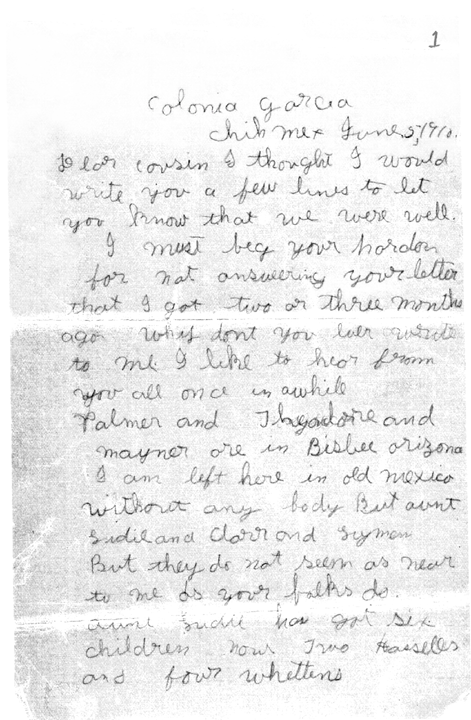 1
Colonia Garcia
Chih Mex June 5, 1910.
Dear cousin I thought I would
write you a few lines to let
you know that we were well.
I must beg your pardon
for not answering your letter
that I got two or three months
ago why dont you ever write
to me I like to hear from
you all once in awhile
Palmer and and
mayner are in Bisbee arizona
I am left here in old mexico
without any body But aunt
and and
But they do not seem as near
to me as your folks do.
aunt has got six
children now Two
and four whettens